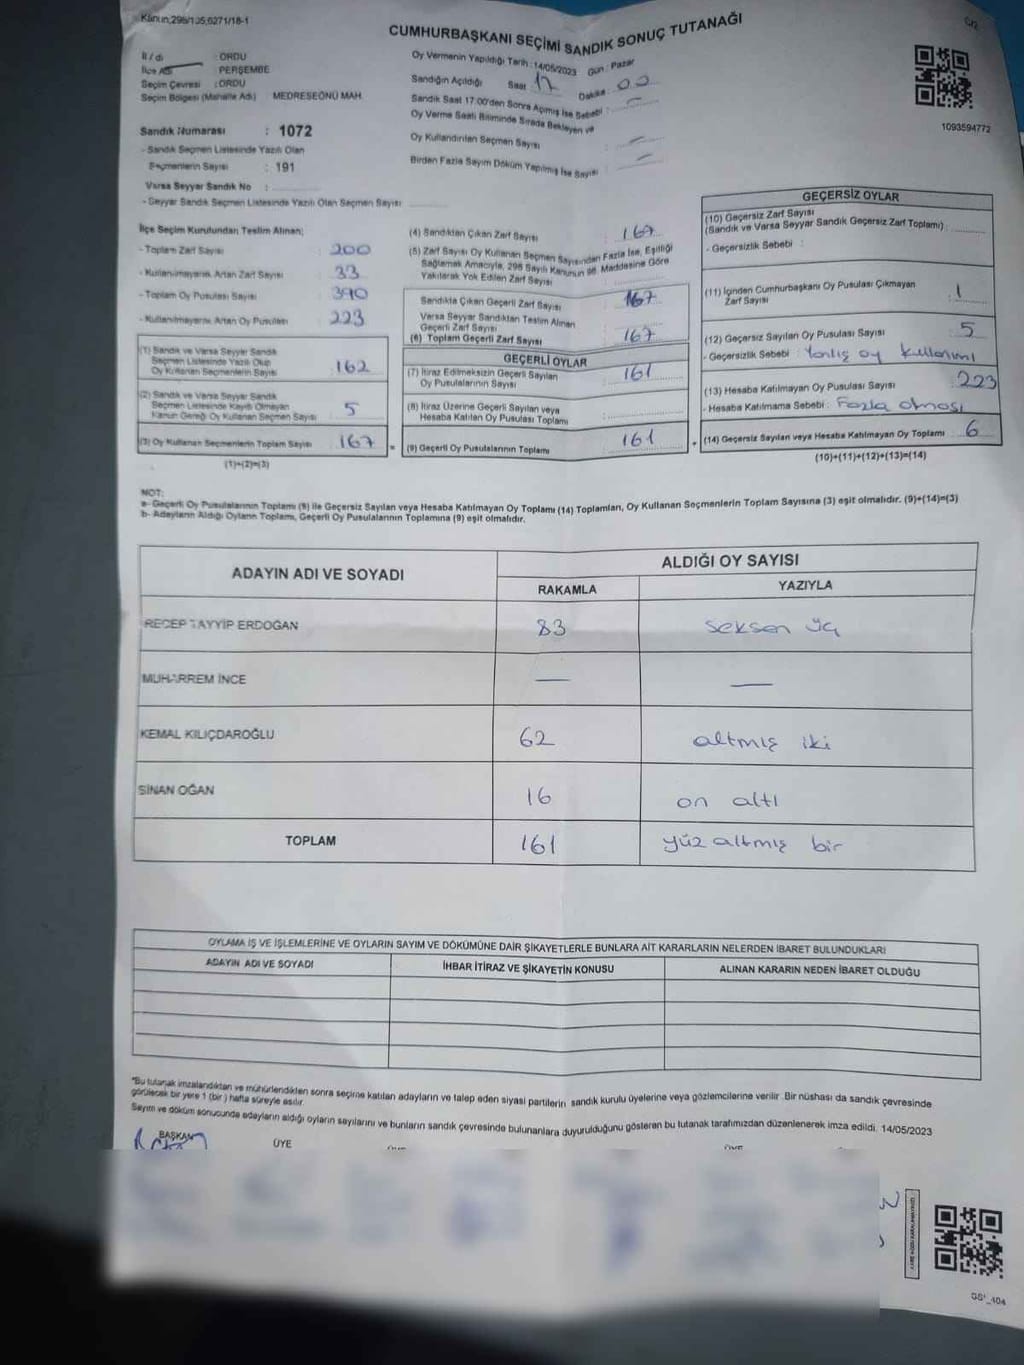 Kanun,298/105,6271/18-1
CUMHURBAŞKANI SEÇİMİ SANDIK SONUÇ TUTANAĞI
İl / di : ORDU
İlçe Adı : PERŞEMBE
Seçim Çevresi : ORDU
Seçim Bölgesi (Mahalle Adı) MEDRESEÖNÜ MAH.
Sandık Numarası : 1072
- Sandık Seçmen Listesinde Yazılı Olan
Seçmenlerin Sayısı : 191
Varsa Seyyar Sandık No :
- Seyyar Sandık Seçmen Listesinde Yazılı Olan Seçmen Sayısı
Oy Vermenin Yapıldığı Tarih : 14/05/2023 Gün : Pazar
Sandığın Açıldığı Saat 17 Dakika : 00
Sandık Saat 17:00'den Sonra Açılmış İse Sebebi : –
Oy Verme Saati Bitiminde Sırada Bekleyen ve
Oy Kullandırılan Seçmen Sayısı : –
Birden Fazla Sayım Döküm Yapılmış İse Sayısı : –
1093594772
İlçe Seçim Kurulundan Teslim Alınan;
- Toplam Zarf Sayısı : 200
- Kullanılmayarak Artan Zarf Sayısı : 33
- Toplam Oy Pusulası Sayısı : 390
- Kullanılmayarak Artan Oy Pusulası : 223
(1) Sandık ve Varsa Seyyar Sandık
Seçmen Listesinde Yazılı Olup
Oy Kullanan Seçmenlerin Sayısı : 162
(2) Sandık ve Varsa Seyyar Sandık
Seçmen Listesinde Kayıtlı Olmayan
Kanun Gereği Oy Kullanan Seçmen Sayısı : 5
(3) Oy Kullanan Seçmenlerin Toplam Sayısı : 167 =
(1)+(2)=(3)
(4) Sandıktan Çıkan Zarf Sayısı : 167
(5) Zarf Sayısı Oy Kullanan Seçmen Sayısından Fazla İse, Eşitliği
Sağlamak Amacıyla, 298 Sayılı Kanunun 98. Maddesine Göre
Yakılarak Yok Edilen Zarf Sayısı :
Sandıkta Çıkan Geçerli Zarf Sayısı : 167
Varsa Seyyar Sandıktan Teslim Alınan
Geçerli Zarf Sayısı
(6) Toplam Geçerli Zarf Sayısı : 167
GEÇERLİ OYLAR
(7) İtiraz Edilmeksizin Geçerli Sayılan
Oy Pusulalarının Sayısı : 161
(8) İtiraz Üzerine Geçerli Sayılan veya
Hesaba Katılan Oy Pusulası Toplamı :
(9) Geçerli Oy Pusulalarının Toplamı : 161 +
GEÇERSİZ OYLAR
(10) Geçersiz Zarf Sayısı
(Sandık ve Varsa Seyyar Sandık Geçersiz Zarf Toplamı) :
- Geçersizlik Sebebi :
(11) İçinden Cumhurbaşkanı Oy Pusulası Çıkmayan
Zarf Sayısı : 1
(12) Geçersiz Sayılan Oy Pusulası Sayısı : 5
- Geçersizlik Sebebi : Yanlış oy kullanımı
(13) Hesaba Katılmayan Oy Pusulası Sayısı : 223
- Hesaba Katılmama Sebebi : Fazla olması
(14) Geçersiz Sayılan veya Hesaba Katılmayan Oy Toplamı : 6
(10)+(11)+(12)+(13)=(14)
NOT:
a- Geçerli Oy Pusulalarının Toplamı (9) ile Geçersiz Sayılan veya Hesaba Katılmayan Oy Toplamı (14) Toplamları, Oy Kullanan Seçmenlerin Toplam Sayısına (3) eşit olmalıdır. (9)+(14)=(3)
b- Adayların Aldığı Oyların Toplamı, Geçerli Oy Pusulalarının Toplamına (9) eşit olmalıdır.
ADAYIN ADI VE SOYADI ALDIĞI OY SAYISI
RAKAMLA YAZIYLA
RECEP TAYYİP ERDOĞAN 83 seksen üç
MUHARREM İNCE — —
KEMAL KILIÇDAROĞLU 62 altmış iki
SİNAN OĞAN 16 on altı
TOPLAM 161 yüz altmış bir
OYLAMA İŞ VE İŞLEMLERİNE VE OYLARIN SAYIM VE DÖKÜMÜNE DAİR ŞİKAYETLERLE BUNLARA AİT KARARLARIN NELERDEN İBARET BULUNDUKLARI
ADAYIN ADI VE SOYADI İHBAR İTİRAZ VE ŞİKAYETİN KONUSU ALINAN KARARIN NEDEN İBARET OLDUĞU
*Bu tutanak imzalandıktan ve mühürlendikten sonra seçime katılan adayların ve talep eden siyasi partilerin sandık kurulu üyelerine veya gözlemcilerine verilir. Bir nüshası da sandık çevresinde
görülecek bir yere 1 (bir) hafta süreyle asılır.
Sayım ve döküm sonucunda adayların aldığı oyların sayılarını ve bunların sandık çevresinde bulunanlara duyurulduğunu gösteren bu tutanak tarafımızdan düzenlenerek imza edildi. 14/05/2023
BAŞKAN ÜYE